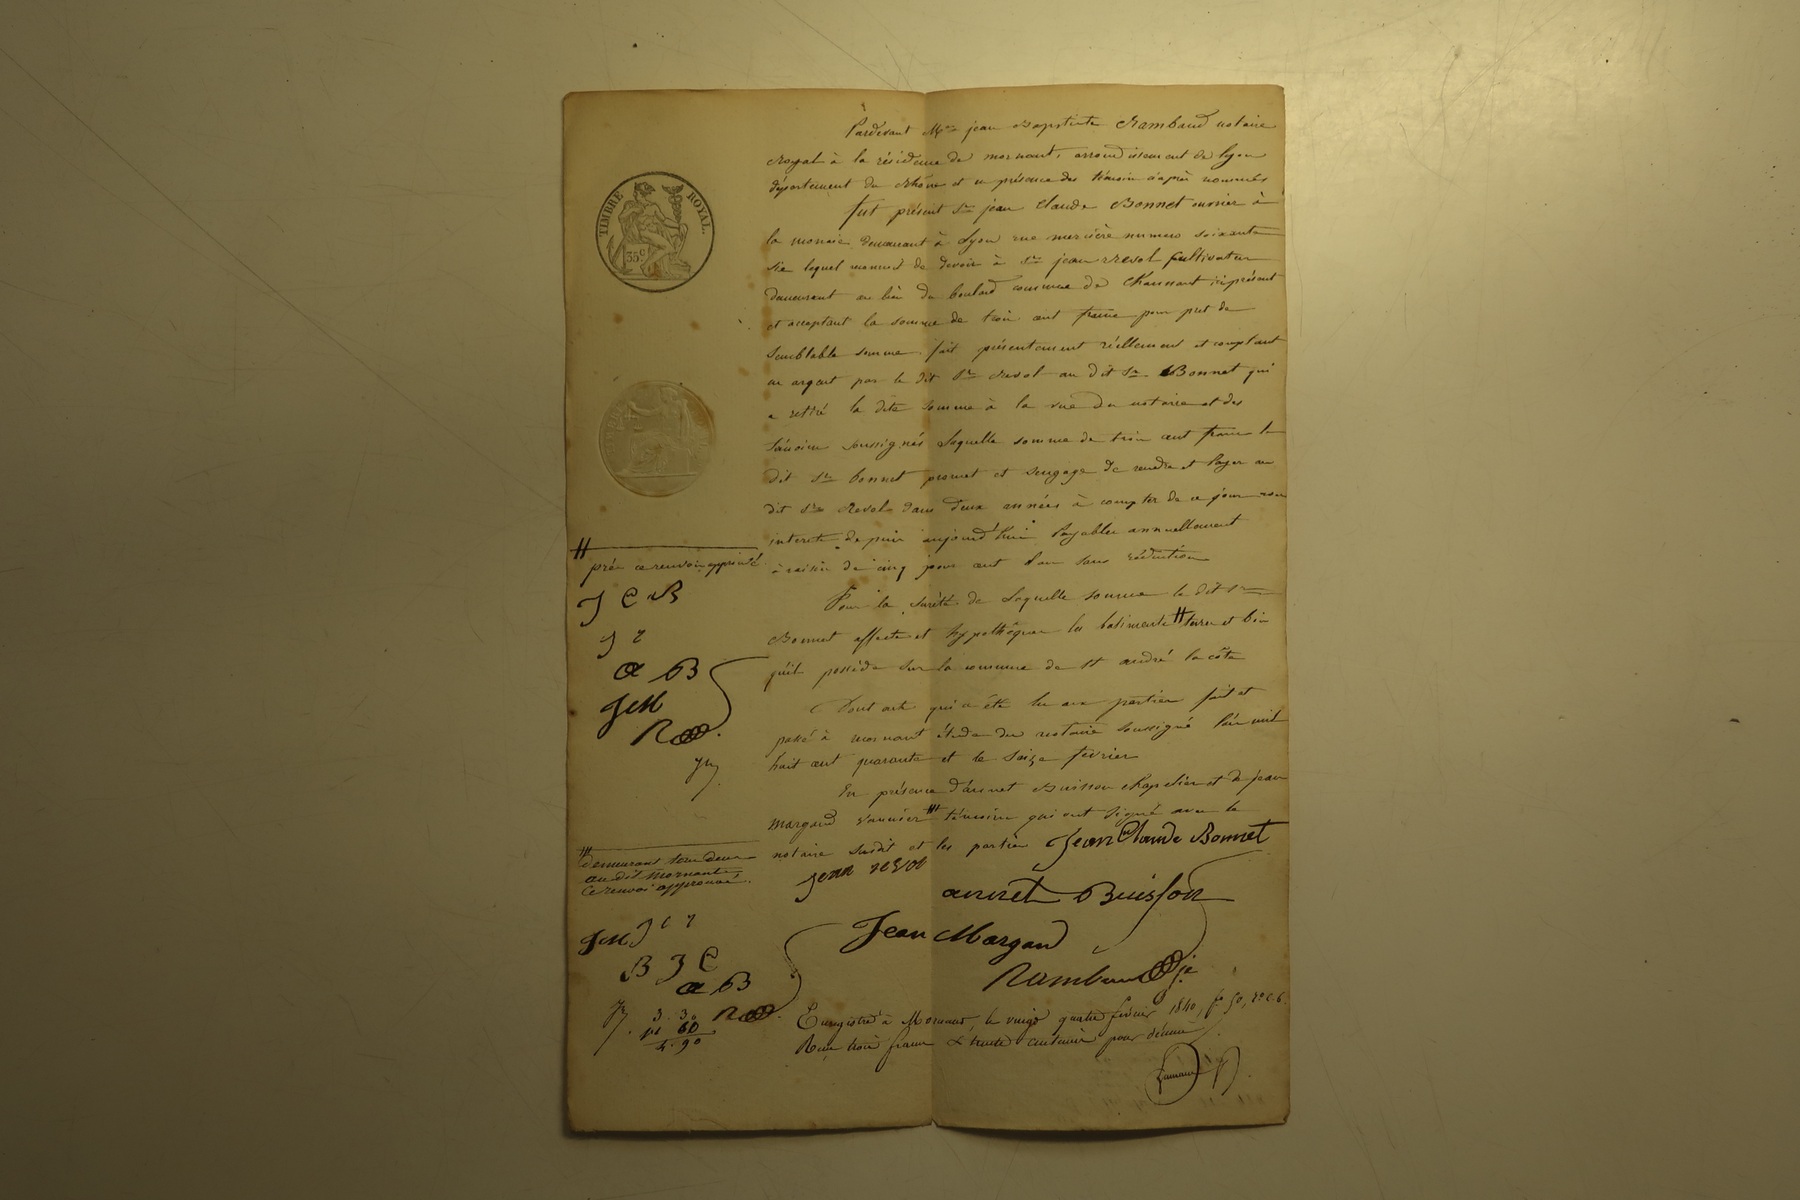 Pardevant Me jean Baptiste Rambaud notaire
Royal à la résidence de mornant, arrondissement de lyon
département du Rhône et en présence des témoins ciaprès nommés
fut présent Sr jean Claude Bonnet ouvrier à
la monaie demeurant à Lyon rue mercière numero soixante
six lequel reconnoit de devoir à Sr jean Revol Cultivateur
demeurant au lieu du boulard commune de Chaussant ici présent
et acceptant la somme de trois cent francs pour pret de
semblable somme fait présentement réellement et comptant
en argent par le dit Sr Revol au dit Sr Bonnet qui
a retiré la dite somme à la vue du notaire et des
témoins soussignés laquelle somme de trois cent francs le
dit Sr bonnet promet et sengage de rendre et payer au
dit Sr Revol dans deux années à compter de ce jour avec
interets depuis aujourd'hui payables annuellement
à raison de cinq pour cent l'an sans réduction
Pour la sureté de laquelle somme le dit Sr
Bonnet affecte et hypothéque les batiments # terres et bien
quil possède sur la commune de St andré la côte
Dont acte qui a été lu aux parties fait et
passé à mornant étude du notaire soussigné l'an mil
huit cent quarante et le seize fevrier
En présence d'annet Buisson chapelier et de jean
margand vannier # témoins qui ont signé avec le
notaire susdit et les parties Jean Claude Bonnet
jean revol
annet Buisson
Jean Margand
Rambaud
Enregistré à Mornant, le vingt quatre fevrier 1840, fo 50, ro c. 6.
Reçu trois francs & trente centimes pour décime
TIMBRE ROYAL.
35c
# prés ce renvoi approuvé
J C B
J r
a B
JM
R
# demeurans tous deux
au dit Mornant
ce renvoi approuvé.
JM J C r
B J C
a B
R
3. 30
60